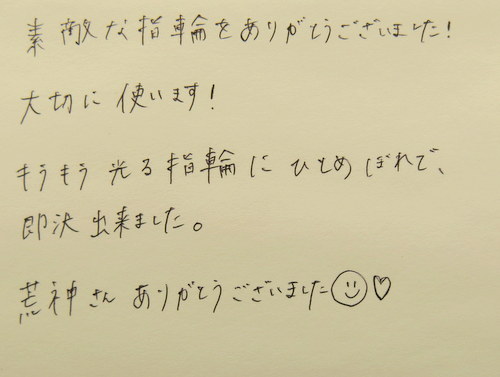 素敵な指輪をありがとうございました!
大切に使います!
キラキラ光る指輪にひとめぼれで、
即決出来ました。
荒神さんありがとうございました☺♡